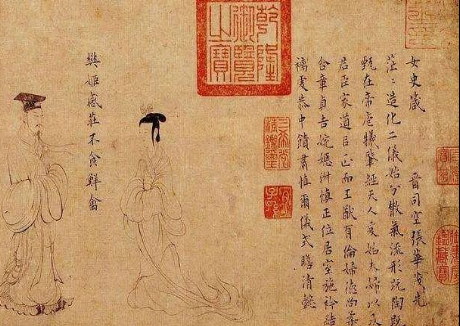 女史箴 晉司空張華茂先
茫〻造化二儀始分散氣流形既陶既
甄在帝庖犧肇經天人爰始夫婦以及
君臣家道以正而王猷有倫婦德尚柔
含章貞吉婉嫕淑慎正位居室施衿結
褵虔恭中饋肅慎爾儀式瞻清懿
樊姬感莊不食鮮禽
乾隆御覽之寶
三希堂精鑑璽
宜子孫